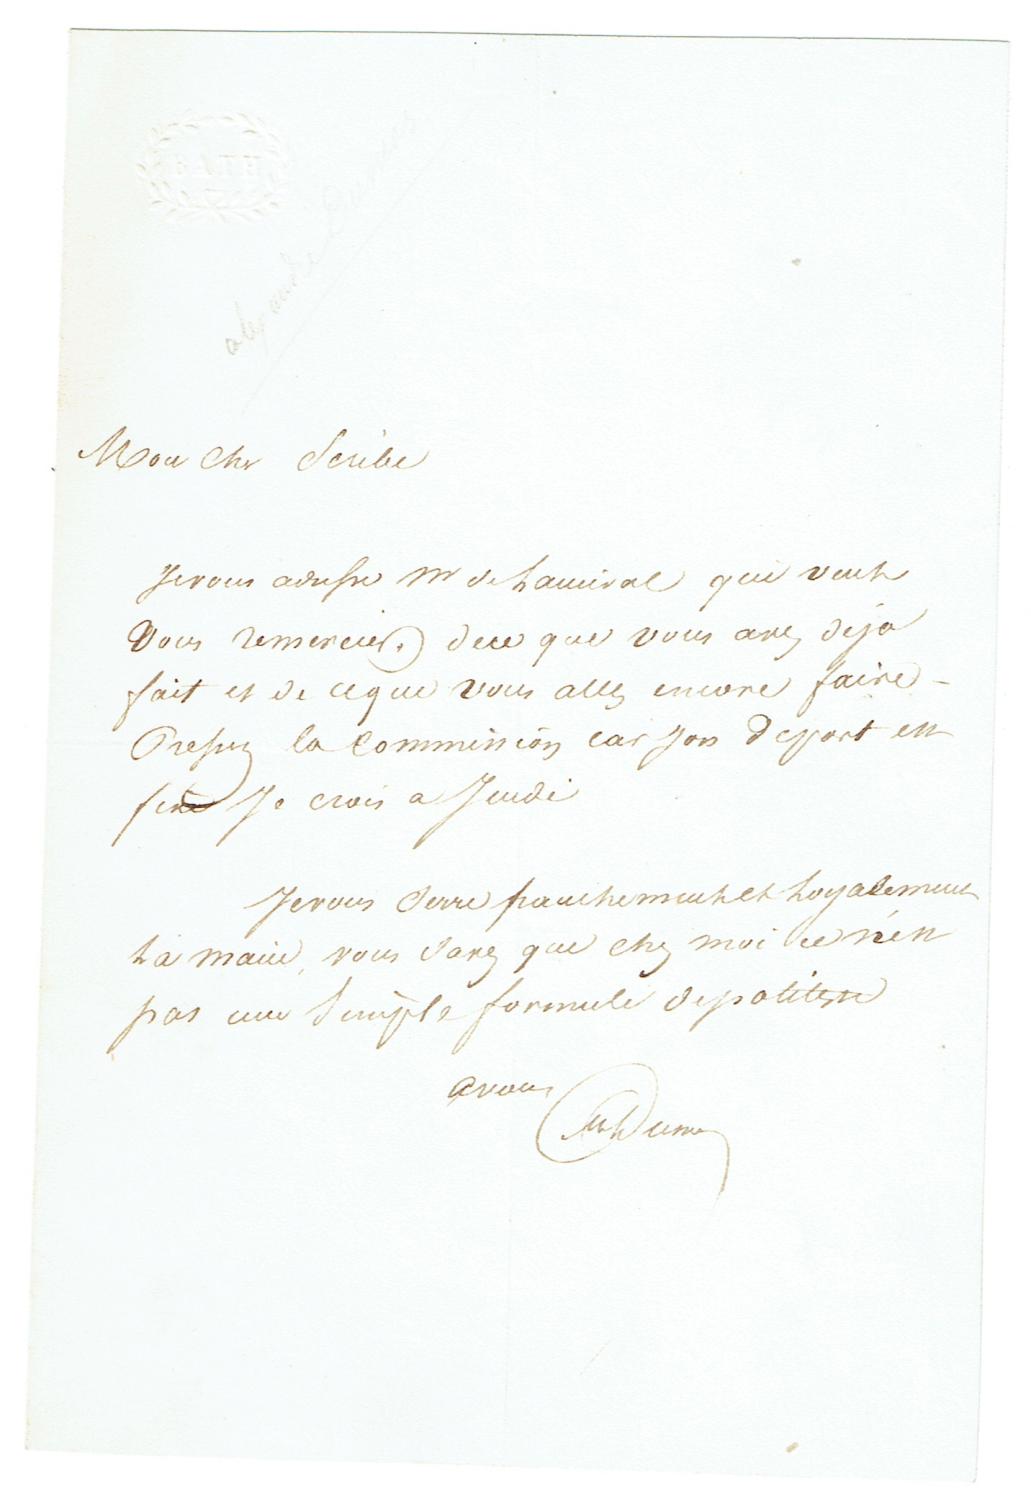 BATH
alexandre Dumas
Mon cher Scribe
Je vous adresse Mr de Lamiral qui veut
vous remercier de ce que vous avez déja
fait et de ce que vous allez encore faire –
Pressez la Commission car son depart est
fixé Je crois a Jeudi
Je vous serre franchement et loyalement
la main, vous savez que chez moi ce n'est
pas une simple formule de politesse
a vous
Alex Dumas